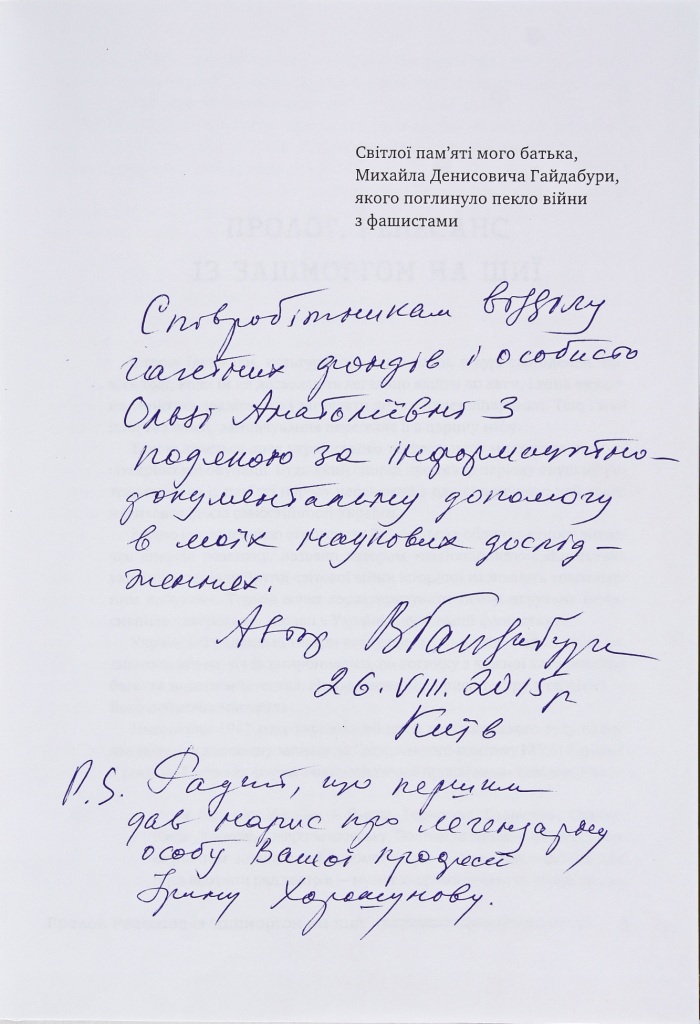 Світлої пам’яті мого батька,
Михайла Денисовича Гайдабури,
якого поглинуло пекло війни
з фашистами
Співробітникам відділу
газетних фондів і особисто
Ользі Анатоліївні З
подякою за інформаційно-
документальну допомогу
в моїх наукових дослід-
женнях.
Автор ВГайдабура
26.VIII.2015р
Київ
P.S. Радий, що першим
дав нарис про легендарну
особу Вашої професії
Ірину Хорошунову.